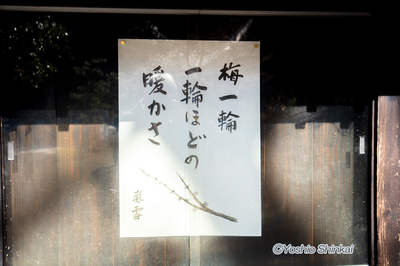 梅一輪
一輪ほどの
暖かさ
嵐雪
©Yoshio Shinkai